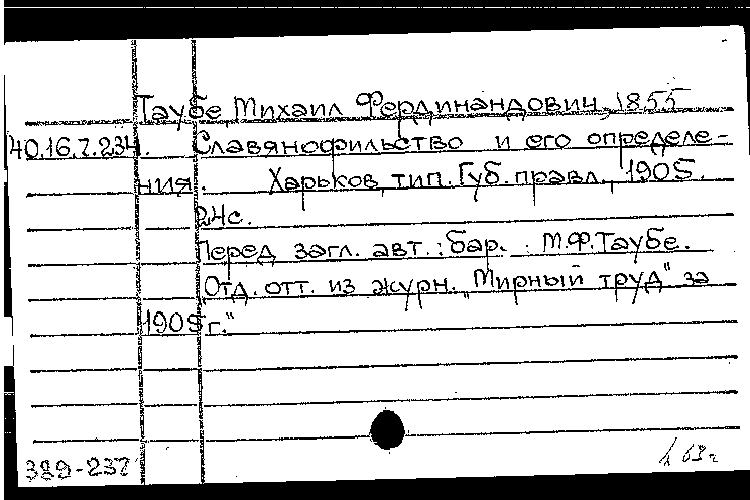 Таубе, Михаил Фердинандович, 1855
40.16.7.234. Славянофильство и его определе-
ния. Харьков, тип. Губ. правл., 1905.
24с.
Перед загл. авт.: бар. М.Ф.Таубе.
"Отд. отт. из журн. "Мирный труд" за
1905 г."
389-237